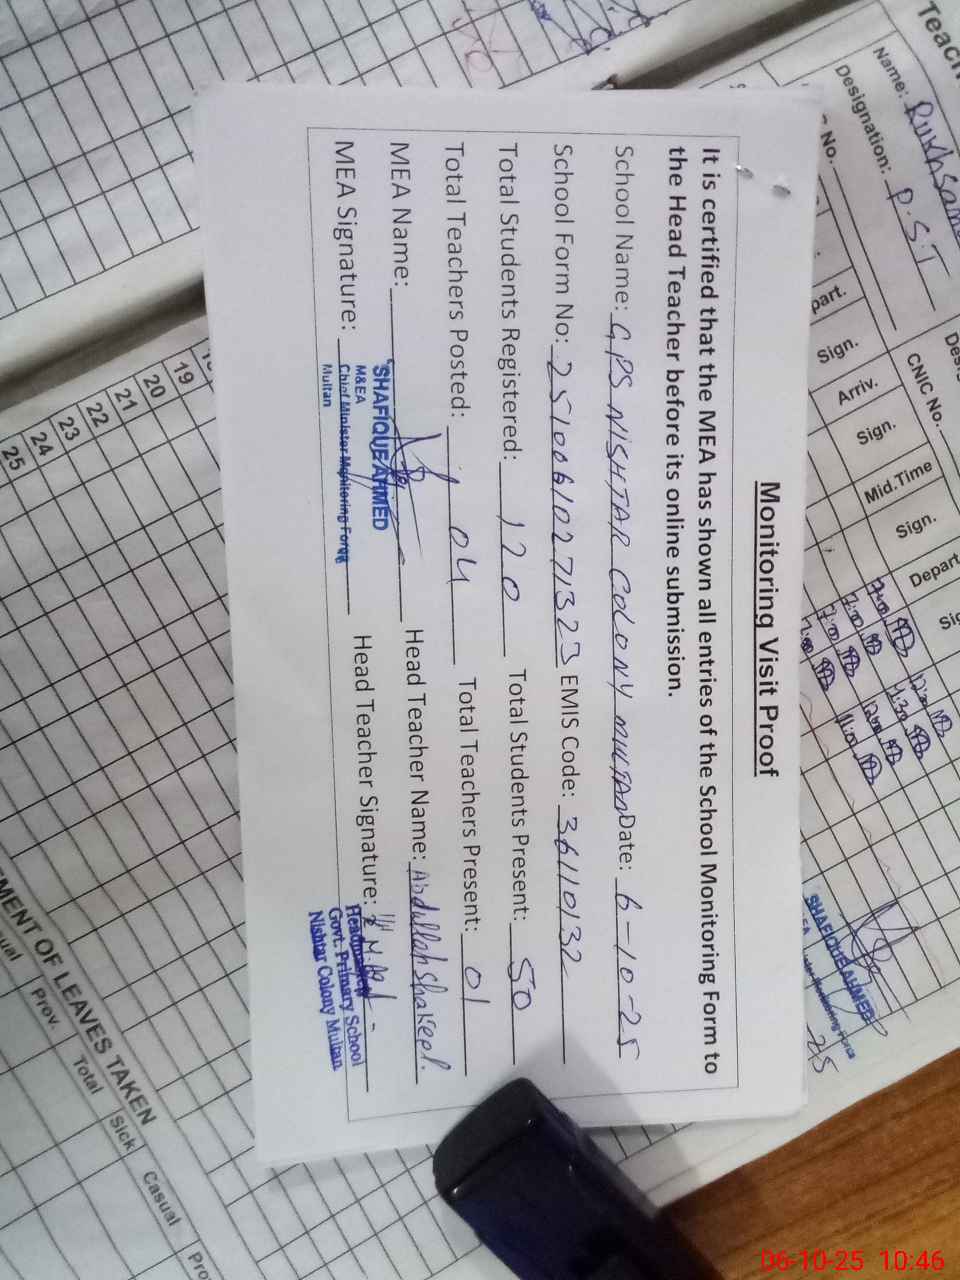 Monitoring Visit Proof
It is certified that the MEA has shown all entries of the School Monitoring Form to
the Head Teacher before its online submission.
School Name: GPS NISHTAR COLONY MULTAN Date: 6-10-25
School Form No: 25100610271323 EMIS Code: 36110132
Total Students Registered: 120 Total Students Present: 50
Total Teachers Posted: 04 Total Teachers Present: 01
MEA Name: Head Teacher Name: Abdullah Shakeel.
MEA Signature: Head Teacher Signature:
SHAFIQUE AHMED
M&EA
Chief Minister Monitoring Force
Multan
Headmaster
Govt. Primary School
Nishtar Colony Multan
Name: Rukhsana
Designation: P.S.T
CNIC No.
No.
part.
Sign.
Arriv.
Sign.
Mid.Time
Sign.
Depart
7:00 12:00
7:00 4:30
7:00 12:00
7:00 11:00
SHAFIQUE AHMED
25
19
20
21
22
23
24
25
MENT OF LEAVES TAKEN
Prov. Total Sick Casual
06-10-25 10:46